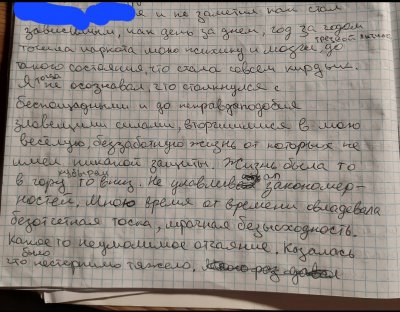 я и не заметил как стал
зависимым, как день за днем, год за годом
точила наркота мою психику и мозги, до
трезвой
такого состояния, что стала совсем кирдык.
тогда
Я не осознавал, что столкнулся с
беспощадными и до неправдоподобия
зловещими силами, вторгшимися в мою
веселую, беззаботную жизнь от которых не
имел никакой защиты. Жизнь была то
кувырком
в гору то вниз. Не улавливал закономер-
ностей. Мною время от времени овладевала
безотчетная тоска, мрачная безысходность.
Какое то неумолимое отчаяние. Казалось
было
что нестерпимо тяжело.